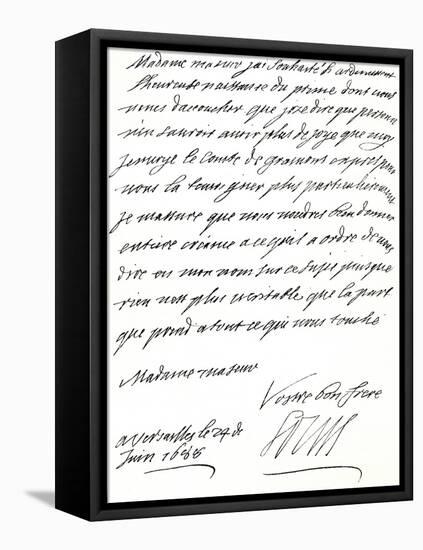 Madame masœur jai souhaitté si ardemment
lheureuse naissance du prince dont vous
venes daccoucher que jose dire que personne
nen sauroit avoir plus de joye que moy
Jenvoye le Comte de gramont expres pour
vous la temoigner plus particulierement
Je massure que vous voudres bien donner
entiere creance a ce quil a ordre de vous
dire en mon nom sur ce sujet puisque
rien nest plus veritable que la part
que prend a tout ce qui vous touche
Madame masœur
Vostre bon frere
Louis
a versailles le 24 de
Juin 1688